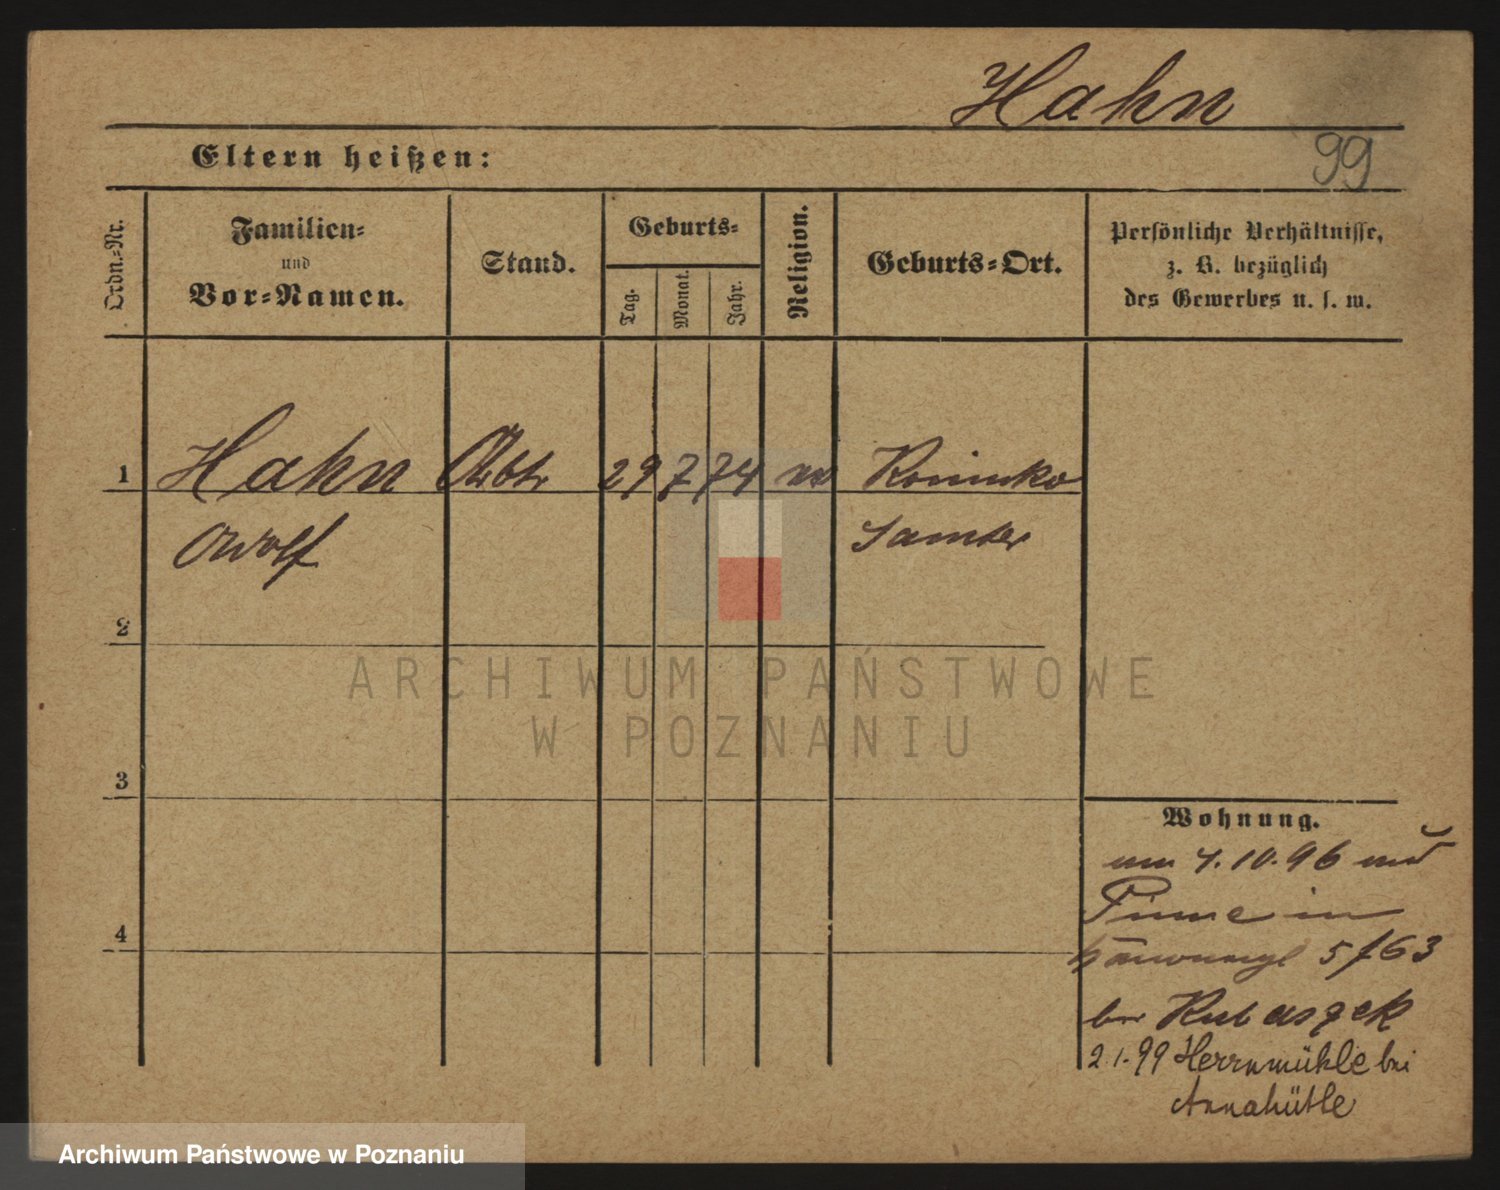 Hahn
Eltern heißen:
99
Ordn.-Nr.
Familien-
und
Vor-Namen.
Stand.
Geburts-
Tag.
Monat.
Jahr.
Religion.
Geburts-Ort.
Persönliche Verhältnisse,
z. B. bezüglich
des Gewerbes u. s. w.
1 Hahn Arbtr 29 7 74
Samter
2
ARCHIWUM PAŃSTWOWE
W POZNANIU
3
4
Wohnung.
4.10.96
Pinne in
5/63
bei Rubaszek
2.1.99 Herrnmühle bei
Annahütte
Archiwum Państwowe w Poznaniu